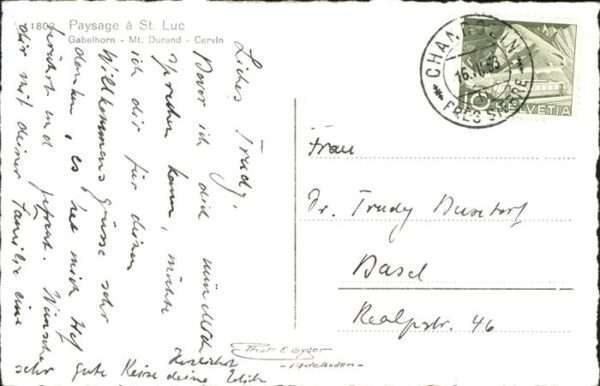 11803 Paysage à St. Luc
Gabelhorn - Mt. Durand - Cervin
Liebes Trudy,
Bevor ich dich mündlich
sprechen kann, möchte
ich dir für deinen
Willkommensgrüsse sehr
danken, es hat mich tief
berührt und gefreut. Wünsche
dir mit deiner Familie eine
sehr gute Reise deine Edith
Herzlichst
CHANDOLIN
16.IV.53
HELVETIA
Frau
Dr. Trudy
Basel
Realpstr. 46